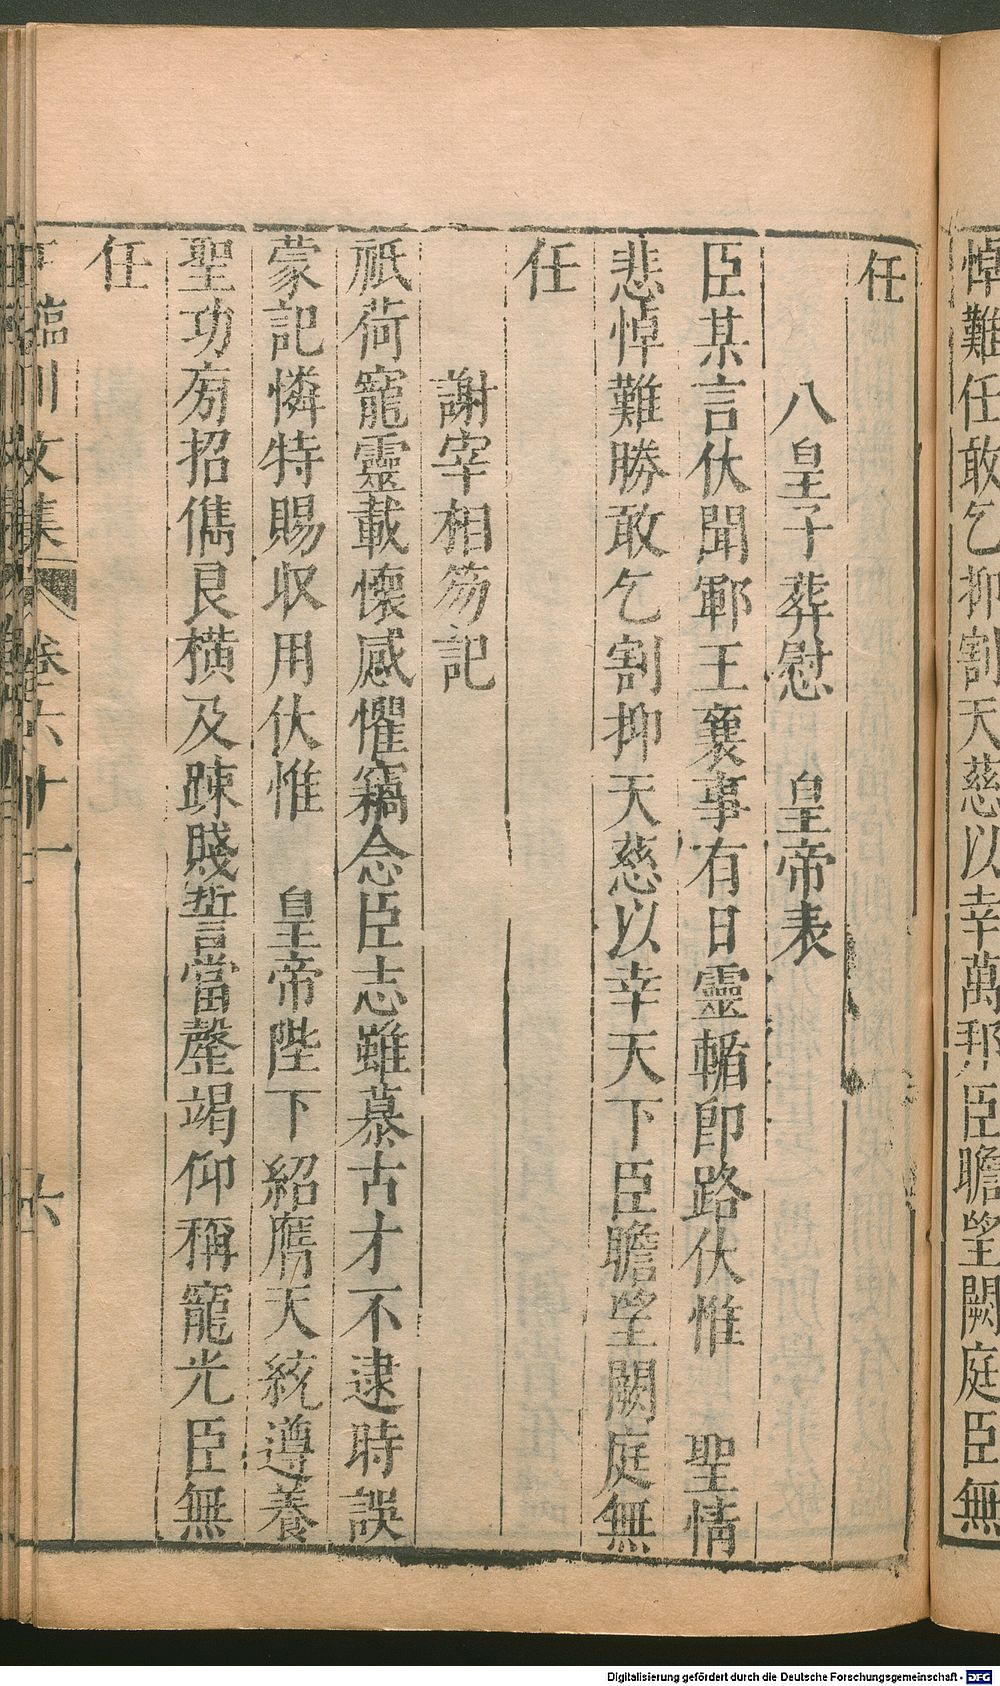 悼難任敢乞抑割天慈以幸萬邦臣瞻望闕庭臣無
任
八皇子葬慰　皇帝表
臣某言伏聞鄆王襄事有日靈輴即路伏惟　聖情
悲悼難勝敢乞割抑天慈以幸天下臣瞻望闕庭無
任
謝宰相笏記
祇荷寵靈載懷感懼竊念臣志雖慕古才不逮時誤
蒙記憐特賜収用伏惟　皇帝陛下紹膺天統遵養
聖功旁招儁艮橫及踈賤誓當罄竭仰稱寵光臣無
任
臨川文集　卷六十一　六
Digitalisierung gefördert durch die Deutsche Forschungsgemeinschaft - DFG